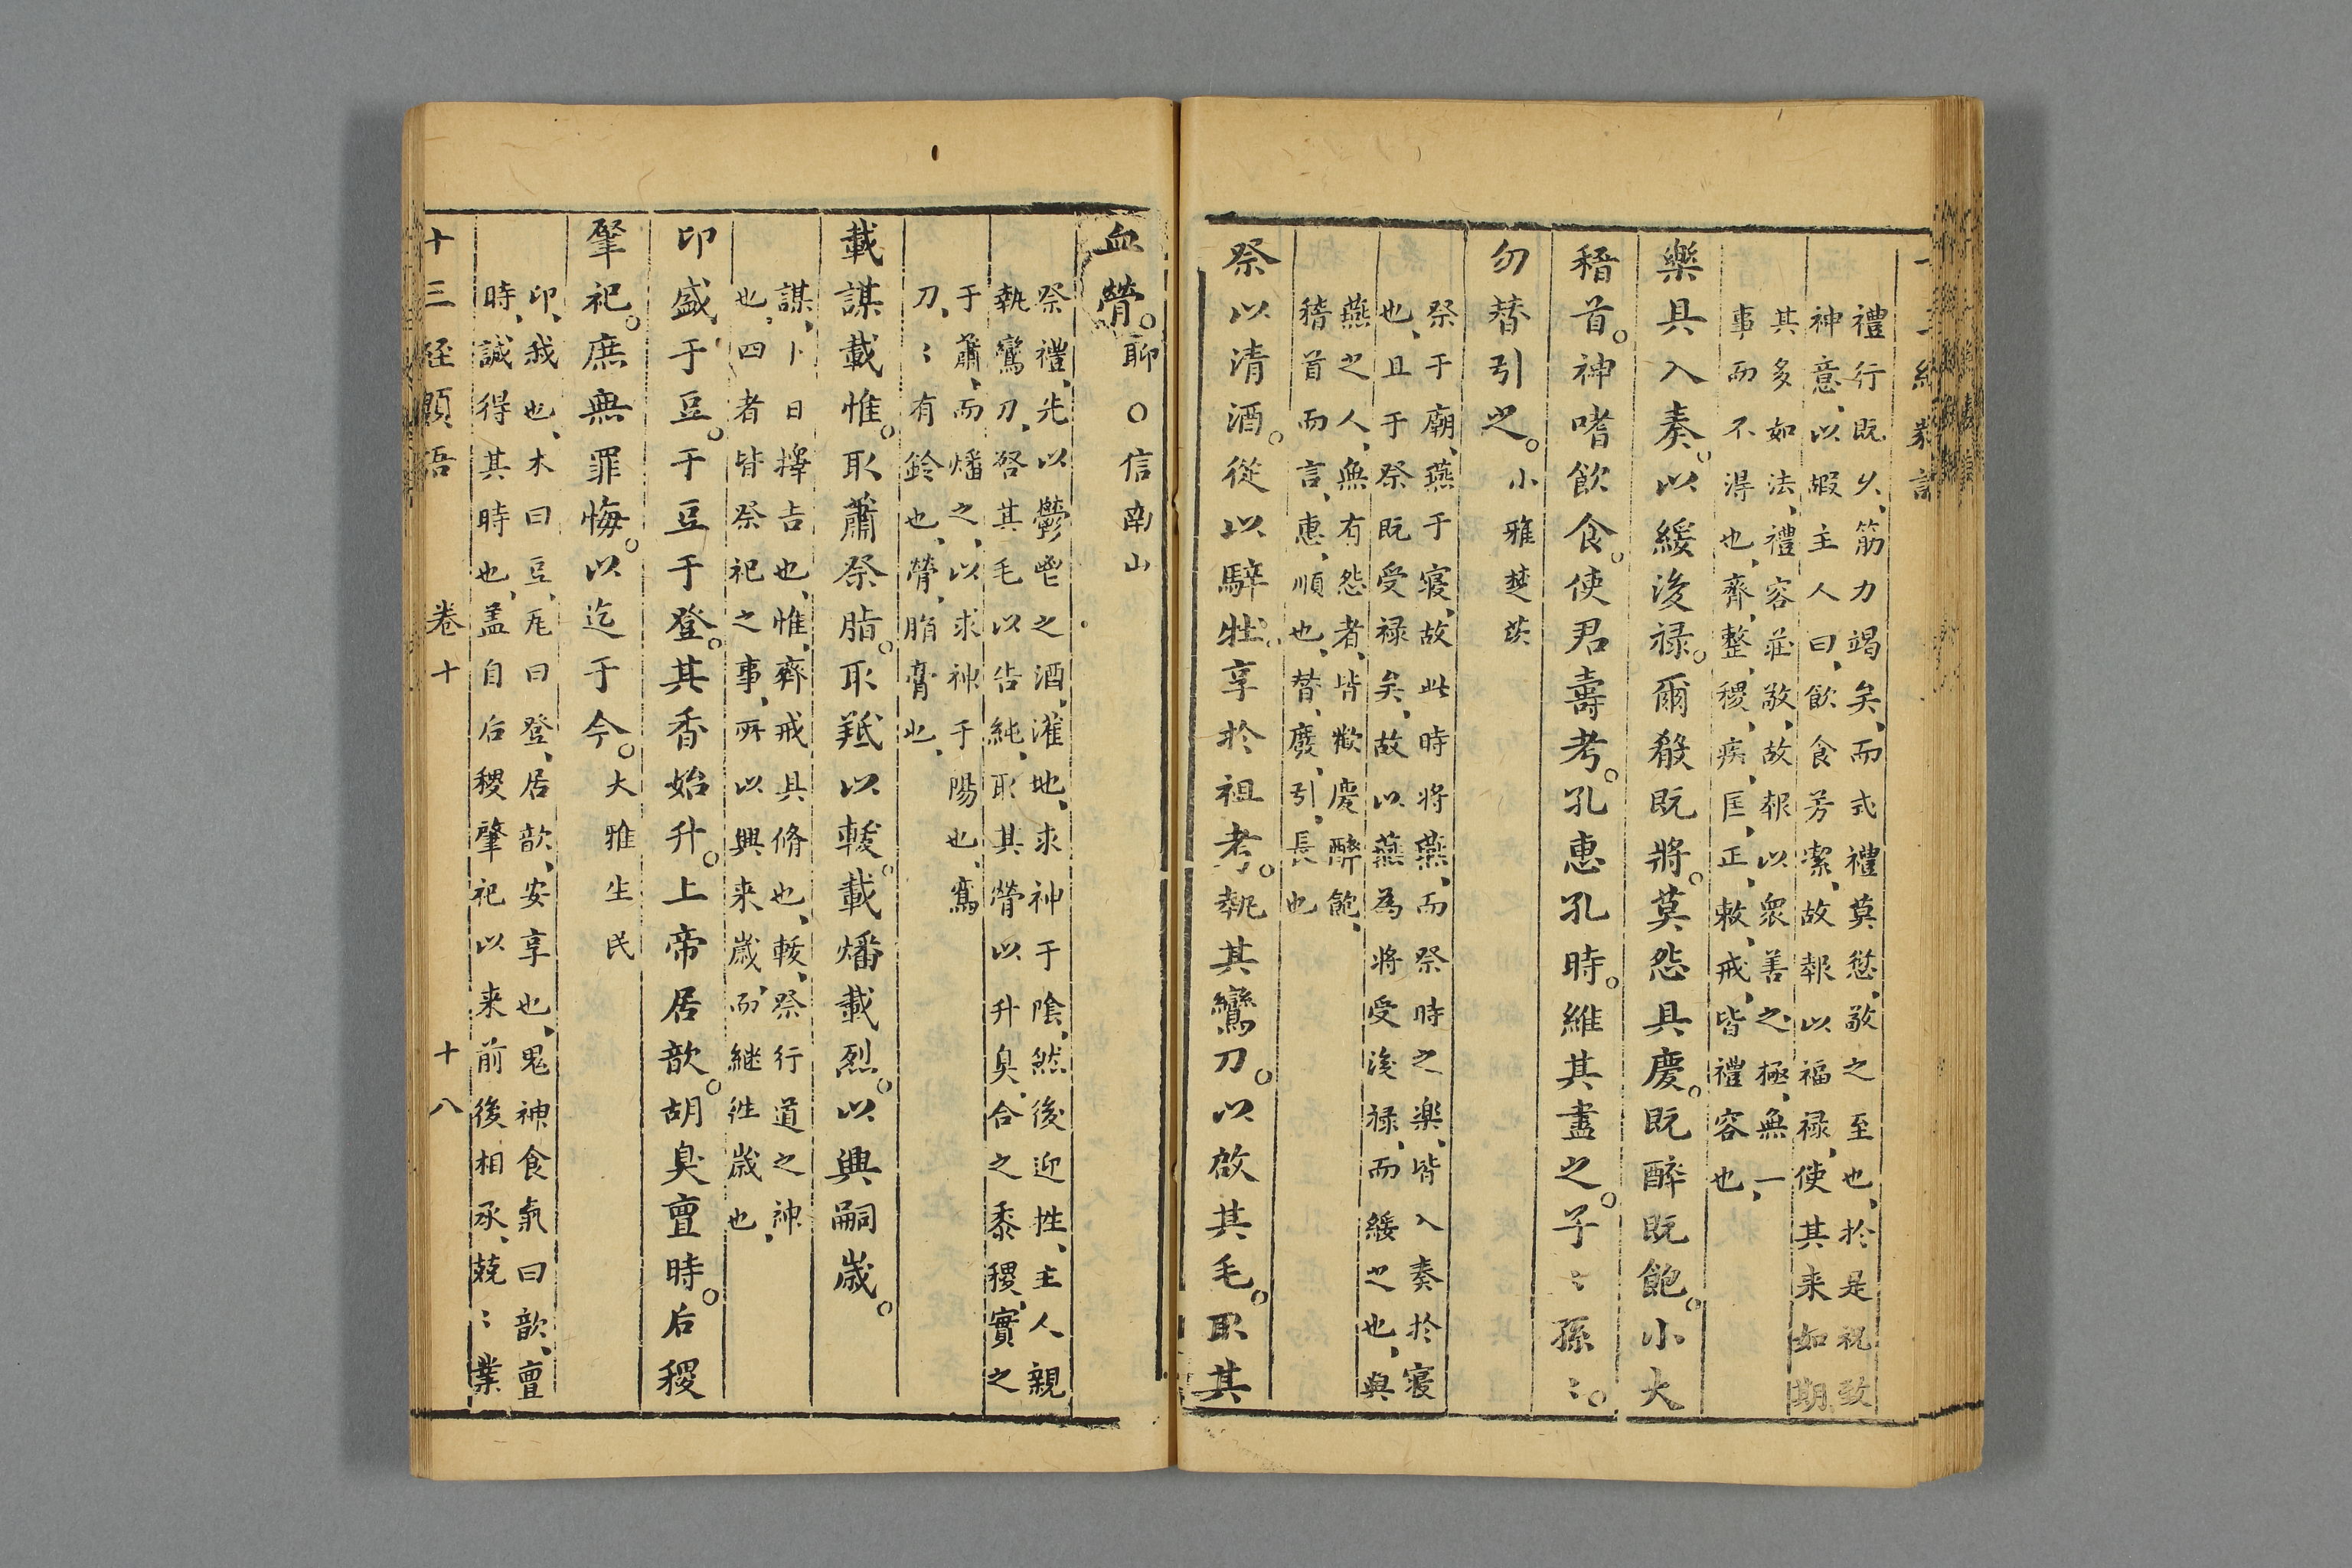 禮行既久、筋力竭矣、而式禮莫愆、敬之至也、於是祝致
神意、以嘏主人曰、飲食芳潔、故報以福禄、使其来如期
其多如法、禮容莊敬、故報以衆善之極、無一
事而不得也、齊、整、稷、疾、匡、正、敕、戒、皆禮容也、
樂具入奏。以綏後禄。爾殽既將。莫怨具慶。既醉既飽。小大
稽首。神嗜飲食。使君壽考。孔惠孔時。維其盡之。子〻孫〻。
勿替引之。小雅楚茨
祭于廟、燕于寝、故此時将燕、而祭時之楽、皆入奏於寝
也、且于祭既受禄矣、故以燕為将受後禄、而綏之也、與
燕之人、無有怨者、皆歡慶醉飽、
稽首而言、惠、順也、替、廢、引、長也
祭以清酒。從以騂牡。享於祖考。執其鸞刀。以啟其毛。取其
血膋。聊〇信南山
祭禮、先以鬱鬯之酒、灌地、求神于陰、然後迎牲、主人親
執鸞刀、啓其毛以告純、取其膋以升臭、合之黍稷、實之
于蕭、而燔之、以求神于陽也、鸞
刀〻有鈴也、膋、脂膏也、
載謀載惟。取蕭祭脂。取羝以軷。載燔載烈。以興嗣歲。
謀、卜日擇吉也、惟、齊戒具脩也、軷、祭行道之神
也、四者皆祭祀之事、所以興来歲、而継徃歲也、
卬盛于豆。于豆于登。其香始升。上帝居歆。胡臭亶時。后稷
肇祀。庶無罪悔。以迄于今。大雅生民
卬、我也、木曰豆、瓦曰登、居歆、安享也、鬼神食氣曰歆、亶
時、誠得其時也、盖自后稷肇祀以来前後相承、兢〻業
十三経類語 卷十 十八